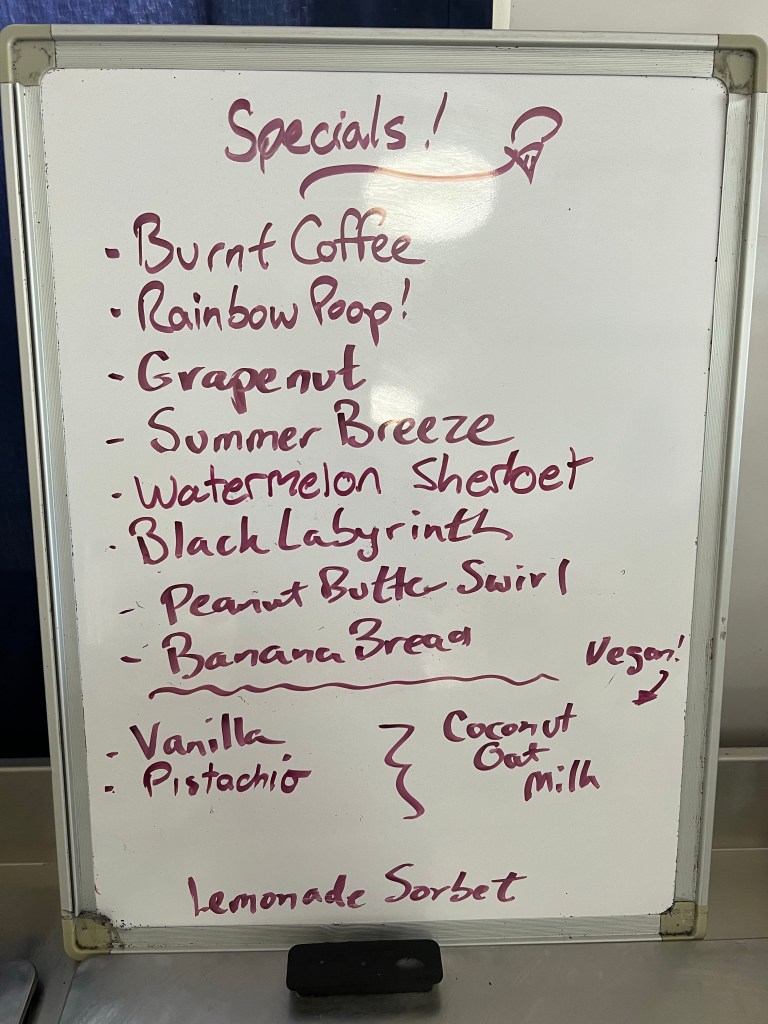 Specials!
- Burnt Coffee
- Rainbow Poop!
- Grapenut
- Summer Breeze
- Watermelon Sherbet
- Black Labyrinth
- Peanut Butter Swirl
- Banana Bread
Vegan!
- Vanilla
- Pistachio
Coconut
Oat
Milk
Lemonade Sorbet